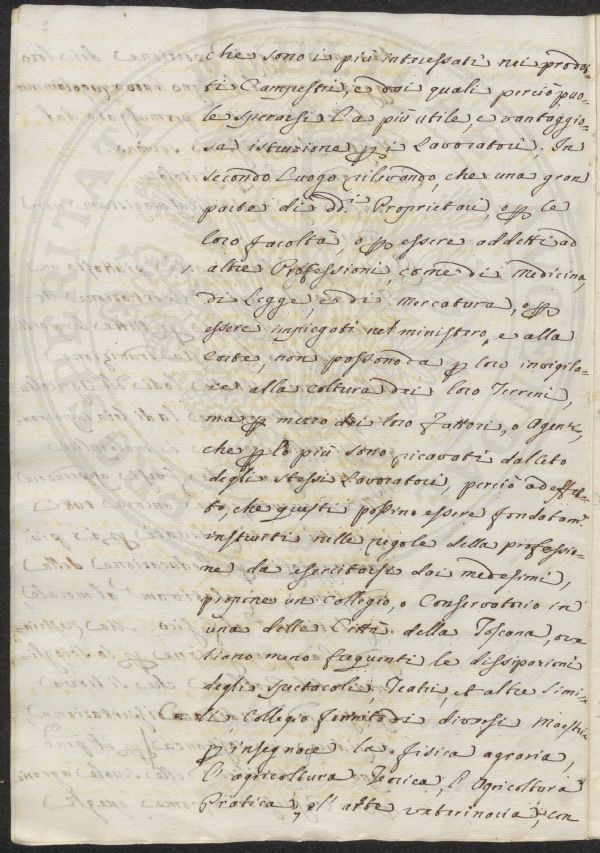 che sono i più intressati nei prodot
ti Campestri, e dai quali perciò puo
le sperarsi la più utile, e vantaggio
sa istruzione p i Lavoratori; In
secondo Luogo rilevando, che una gran
parte di dd. Proprietari, o p le
loro facoltà, o p essere addetti ad
altre Professioni, come di medicina,
di Legge, e di mercatura, o p
essere impiegati nel ministero, e alla
Corte, non possono da p loro invigila
re alla coltura dei loro Terreni,
ma p mezzo dei loro Fattori, o Agenti,
che p lo più sono ricavati dal ceto
degli stessi Lavoratori, perciò ad effet
to, che questi possino essere fondatam.
instruiti nelle regole della professio
ne da esercitarsi dai medesimi,
propone un Collegio, o Conservatorio in
una delle Città della Toscana, ove
siano meno frequenti le dissipazioni
degli spettacoli, Teatri, et altre simi
li, Collegio fornito di diversi Maestri
p insegnare la fisica agraria,
l'agricoltura Teorica, l'Agricoltura
Pratica, el' arte vaterinaria, con